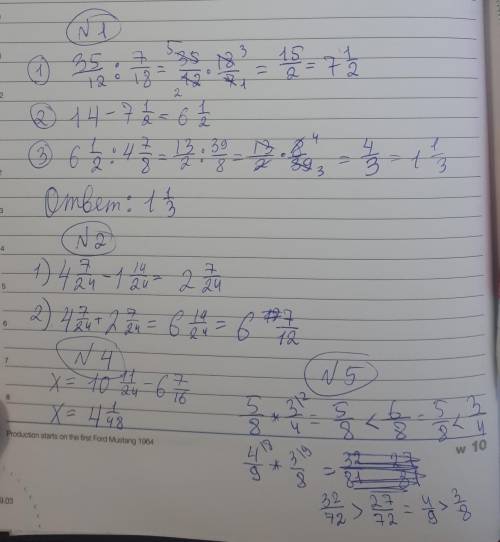 N1
1 35/12 : 7/18 = 35/12 · 18/7 = 15/2 = 7 1/2
2 14 - 7 1/2 = 6 1/2
3 6 1/2 : 4 7/8 = 13/2 : 39/8 = 13/2 · 8/39 = 4/3 = 1 1/3
Ответ: 1 1/3
N2
1) 4 7/24 - 1 14/24 = 2 7/24
2) 4 7/24 + 2 7/24 = 6 14/24 = 6 7/12
N4
x = 10 11/24 - 6 7/16
x = 4 1/48
N5
5/8 * 3/4 = 5/8 < 6/8 = 5/8 < 3/4
4/9 * 3/8 =
32/72 > 27/72 = 4/9 > 3/8
Production starts on the first Ford Mustang 1964
w 10